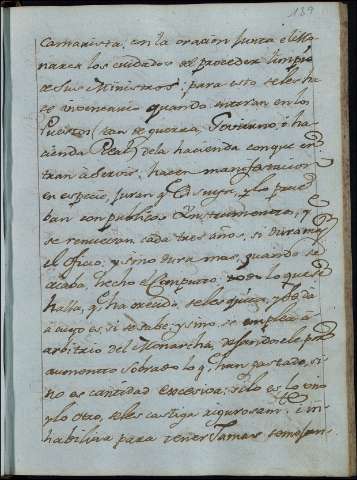 139
Camarista, en la oracion Junta el Mo-
narca los cuidados al proceder limpio
de sus Ministros: para esto se les ha-
ze inventario quando entran en los
Puestos (tan de guerra, Govierno, ò ha-
cienda Real) de la hacienda con que en-
tran à servir; hacen manifestacion
en especie, juran q. es suya, y lo prue-
ban con publicos Instrumentos, y
se renuevan cada tres años, si dura mas
el oficio; y sino dura mas, quando se
acaba, hecho el computo: lo que se
halla, q. ha crecido, se les quita, y se dà
à cuyo es, si se sabe; y sino, se emplea à
arbitrio del Monarcha, dejandole pro
aumento sobrado lo q. han gastado, si
no es cantidad excesiva; si lo es lo uno
y lo otro, se les castiga rigurosam.te è in-
habilita para tener Jamas semejan-